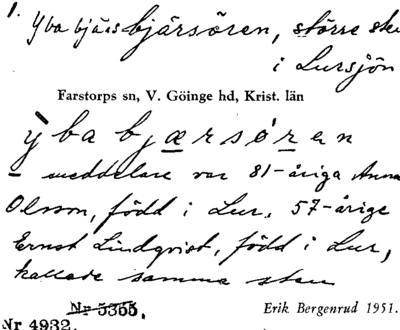 1. Yba bjärsbjärsören, större ste
i Lursjön
Farstorps sn, V. Göinge hd, Krist. län
ẏba bjærsören
meddelare var 81-åriga Anna
Olsson, född i Lur, 57-årige
Ernst Lindqvist, född i Lur,
kallade samma sten
Nr 5355.
Erik Bergenrud 1951.
Nr 4932.